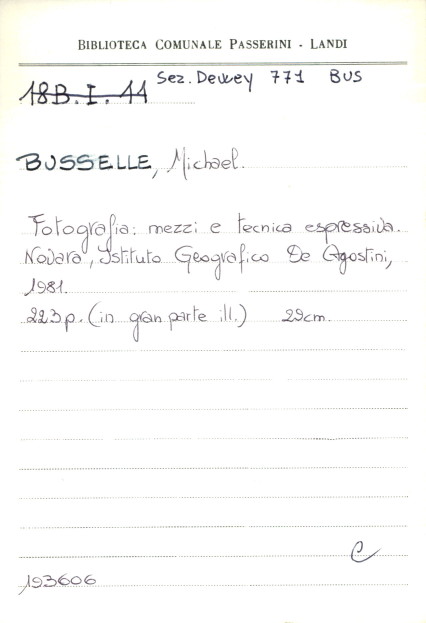 BIBLIOTECA COMUNALE PASSERINI - LANDI
Sez. Dewey 771 BUS
18B.I.11
BUSSELLE, Michael.
Fotografia: mezzi e tecnica espressiva.
Novara, Istituto Geografico De Agostini,
1981.
223p. (in gran parte ill.) 29cm.
C
193606